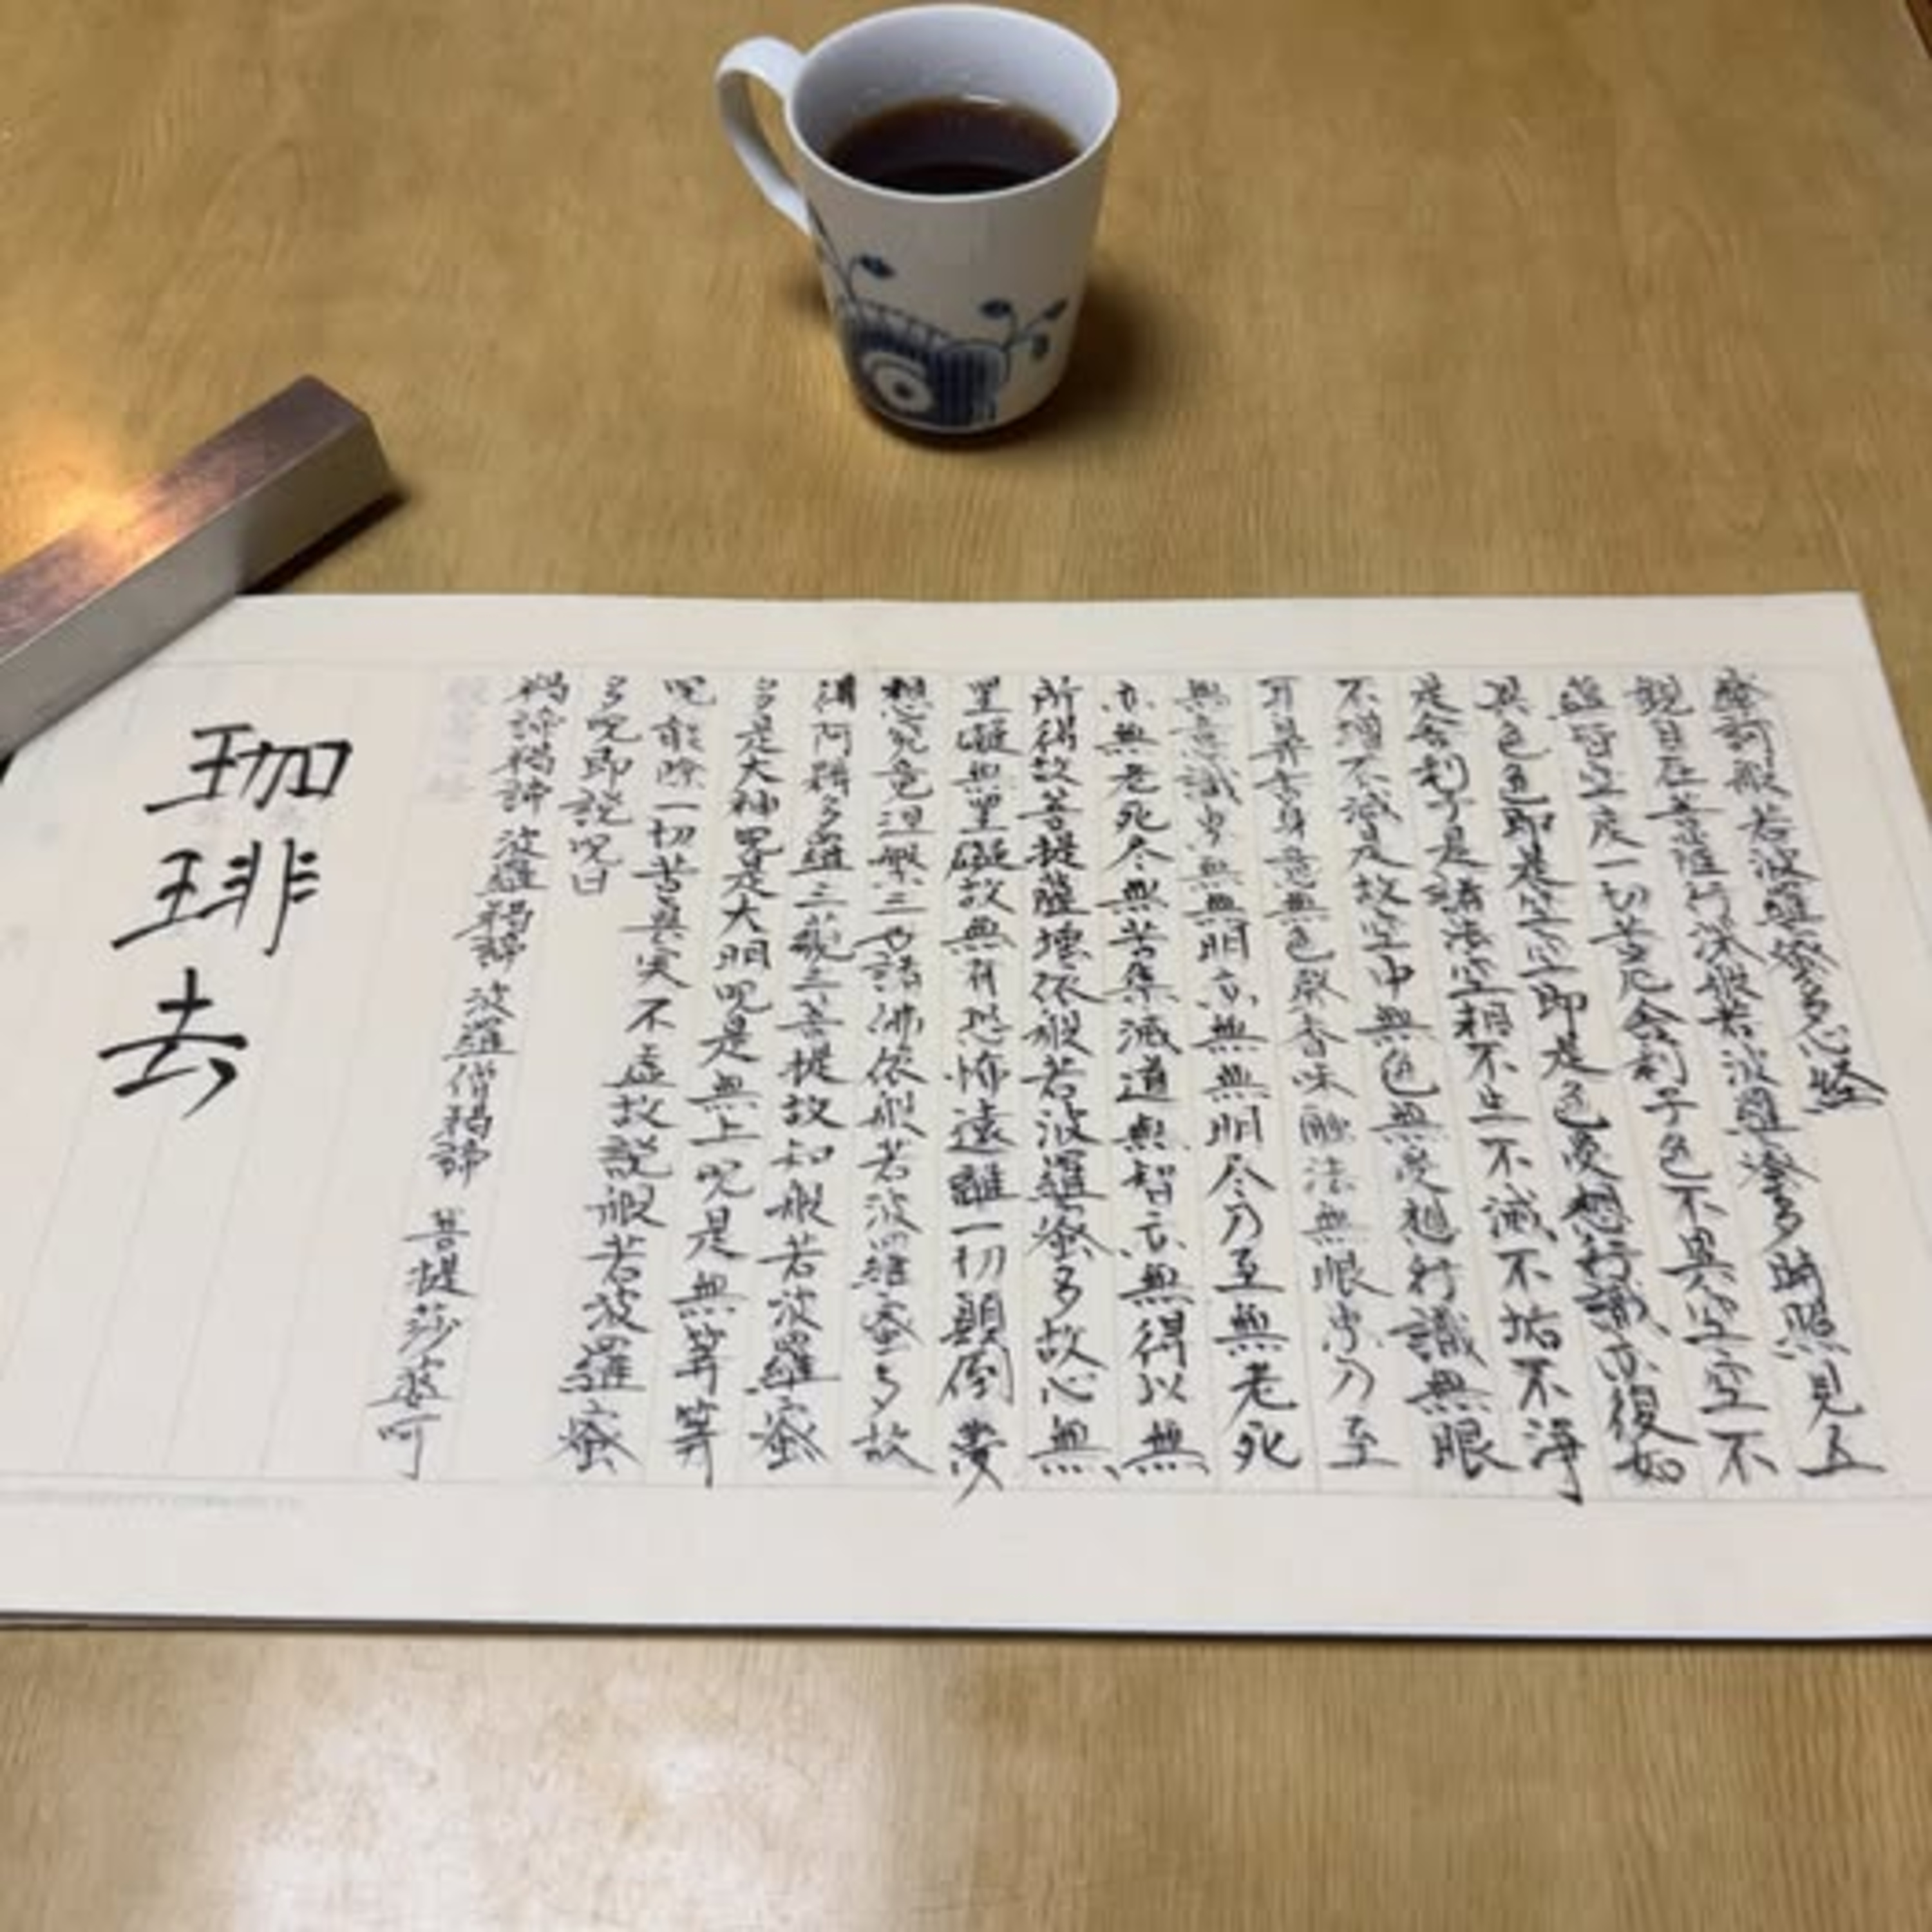 摩訶般若波羅蜜多心経
観自在菩薩行深般若波羅蜜多時照見五
蘊皆空度一切苦厄舎利子色不異空空不
異色色即是空空即是色受想行識亦復如
是舎利子是諸法空相不生不滅不垢不浄
不増不減是故空中無色無受想行識無眼
耳鼻舌身意無色聲香味触法無眼界乃至
無意識界無無明亦無無明尽乃至無老死
亦無老死尽無苦集滅道無智亦無得以無
所得故菩提薩埵依般若波羅蜜多故心無
罣礙無罣礙故無有恐怖遠離一切顛倒夢
想究竟涅槃三世諸佛依般若波羅蜜多故
得阿耨多羅三藐三菩提故知般若波羅蜜
多是大神呪是大明呪是無上呪是無等等
呪能除一切苦真実不虚故説般若波羅蜜
多呪即説呪曰
羯諦羯諦 波羅羯諦 波羅僧羯諦 菩提莎婆呵
珈琲去